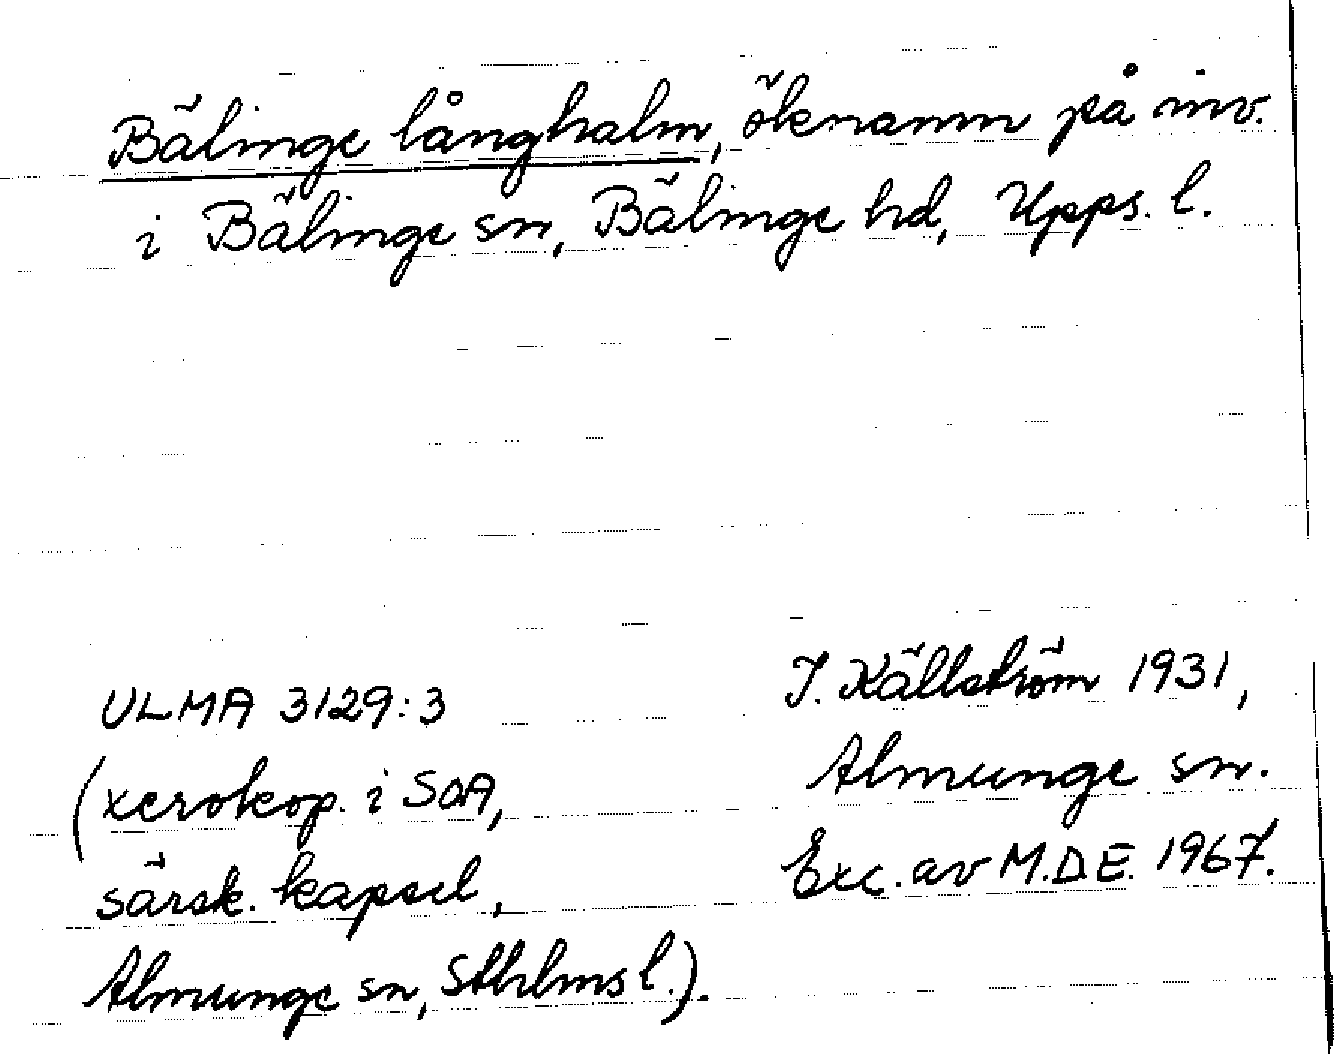 Bälinge långhalm, öknamn på inv.
i Bälinge sn, Bälinge hd, Upps. l.
ULMA 3129:3
(xerokop. i SOA,
särsk. kapsel,
Almunge sn, Sthlms l.).
J. Källström 1931,
Almunge sn.
Exc. av M.D.E. 1967.